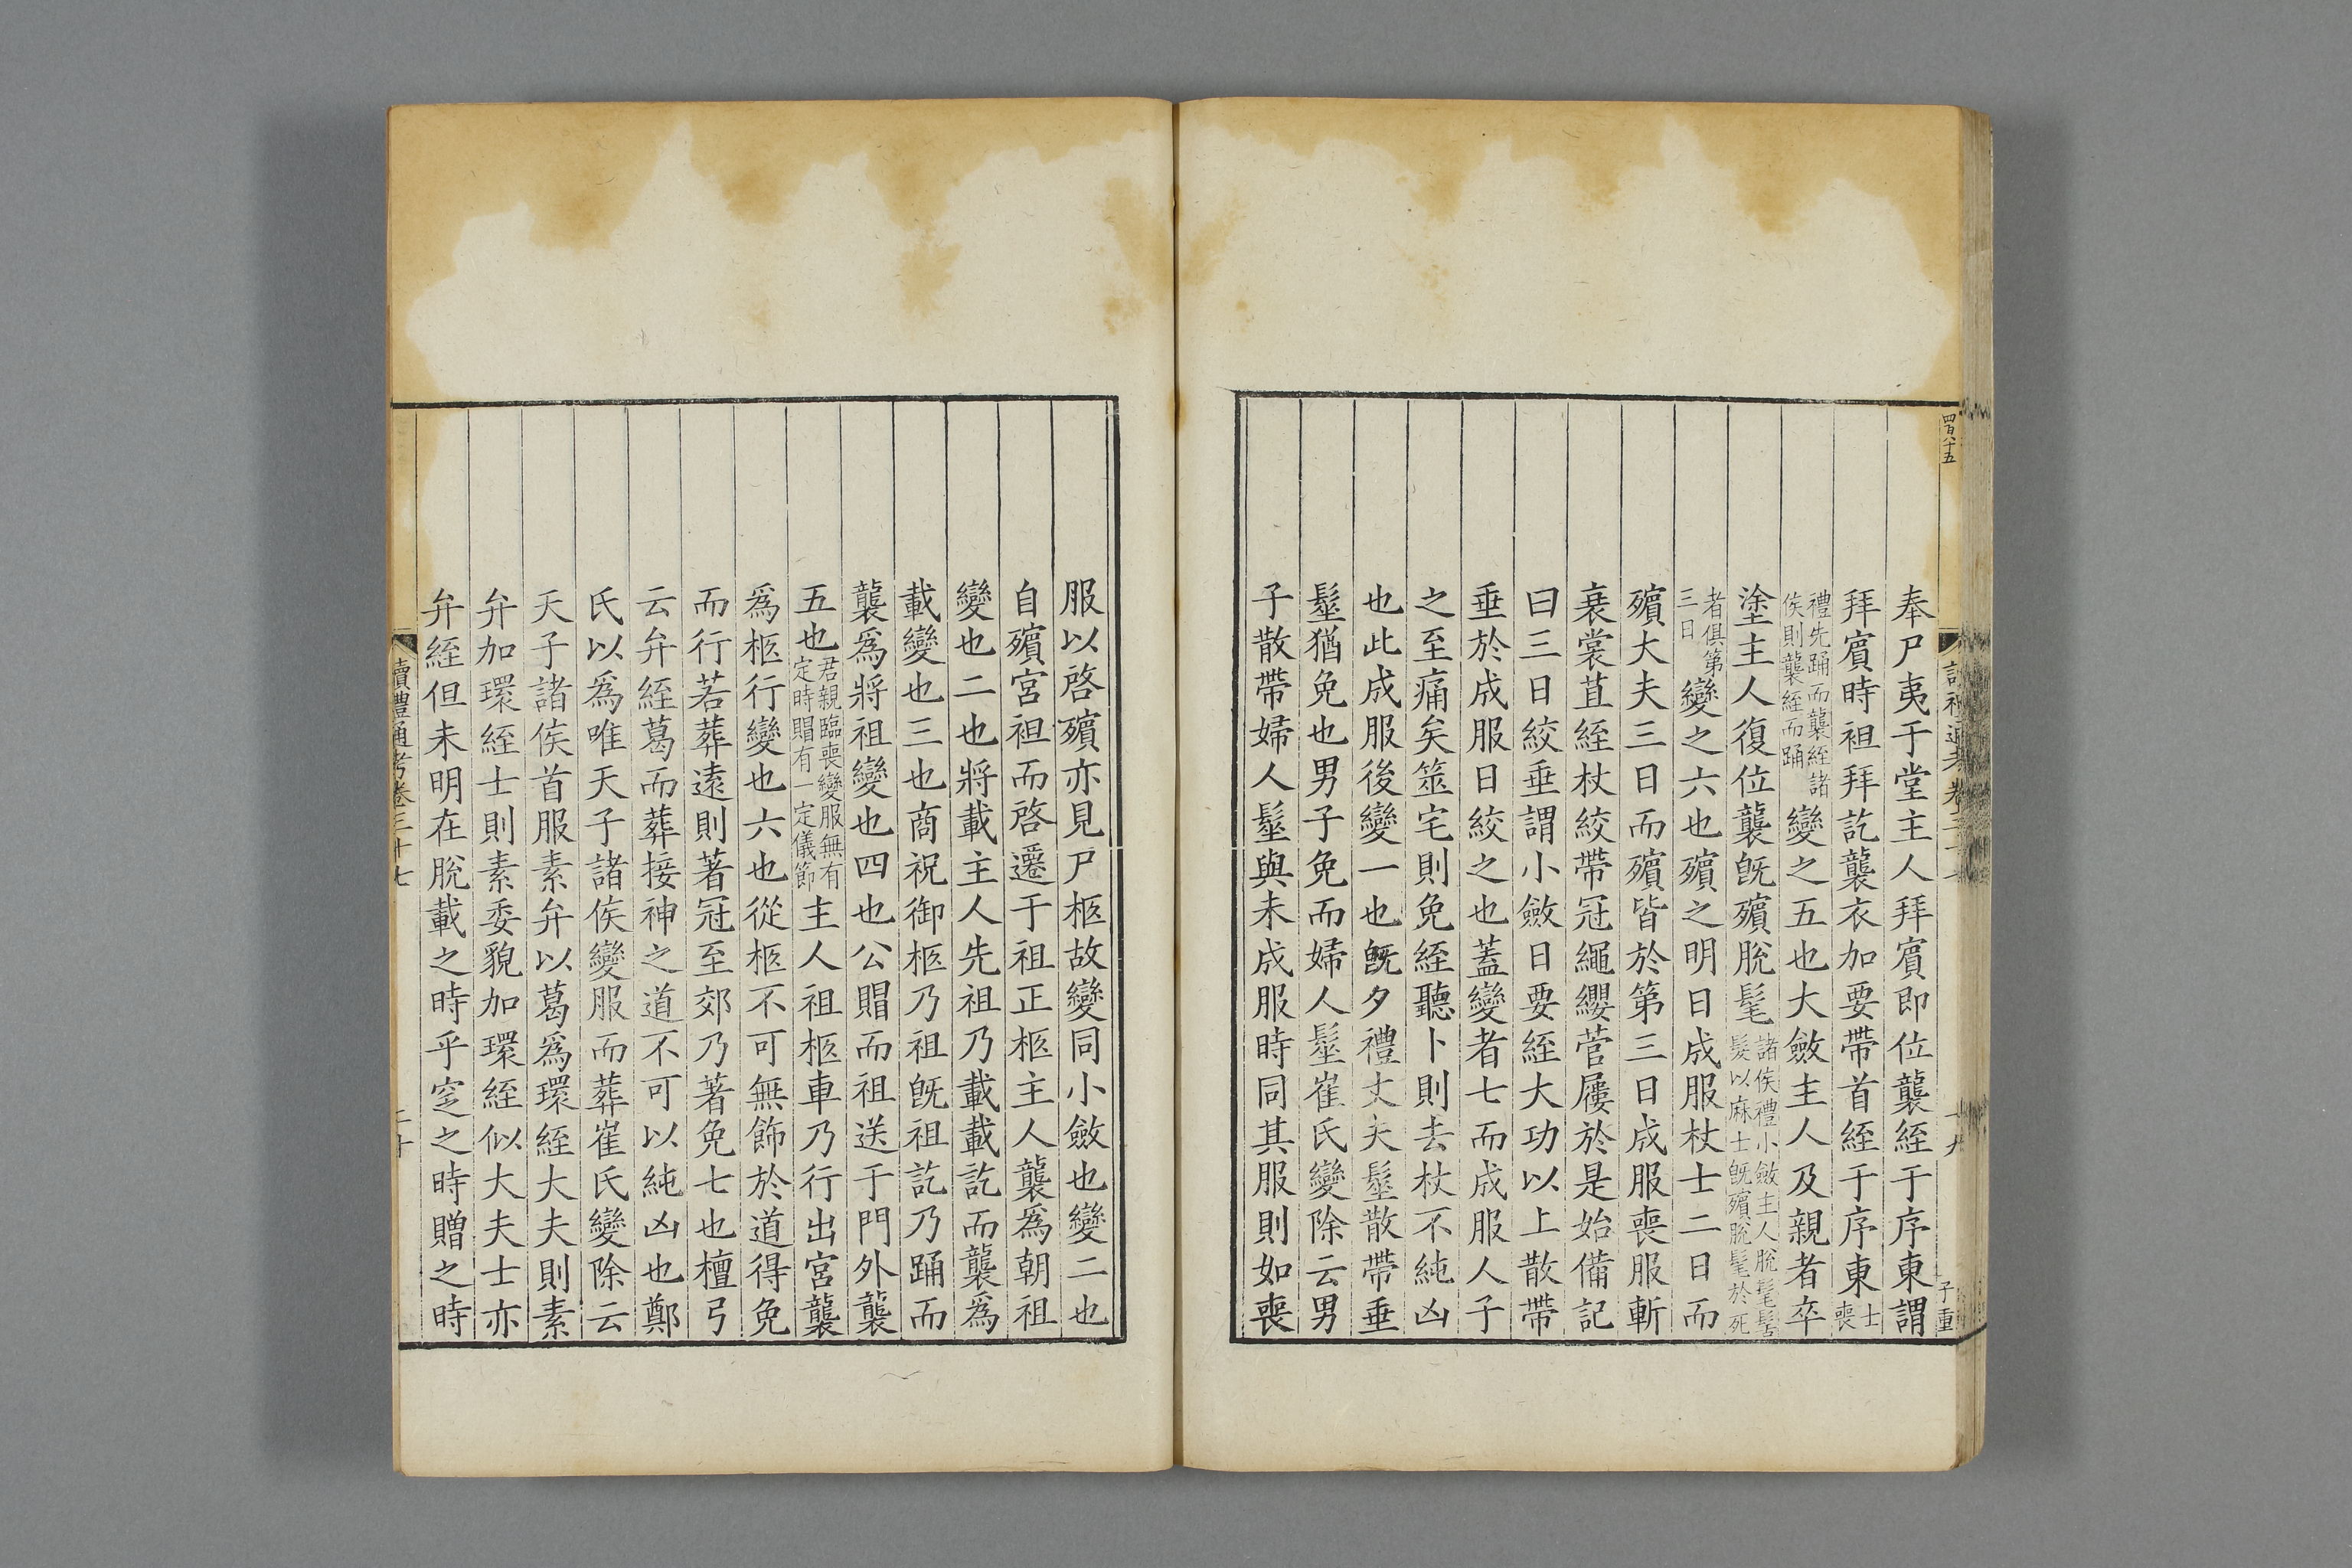 四百八十五
讀禮通考卷三十七
十九
子重
奉尸夷于堂主人拜賔即位襲絰于序東謂
拜賔時袒拜訖襲衣加要帶首絰于序東士喪
禮先踊而襲絰諸侯則襲絰而踊變之五也大斂主人及親者卒
塗主人復位襲旣殯脫髦諸侯禮小斂主人脫髦髺髮以麻士旣殯脫髦於死
者俱第三日變之六也殯之明日成服杖士二日而
殯大夫三日而殯皆於第三日成服喪服斬
衰裳苴絰杖絞帶冠繩纓菅屨於是始備記
曰三日絞垂謂小斂日要絰大功以上散帶
垂於成服日絞之也蓋變者七而成服人子
之至痛矣筮宅則免絰聽卜則去杖不純凶
也此成服後變一也旣夕禮丈夫髽散帶垂
髽猶免也男子免而婦人髽崔氏變除云男
子散帶婦人髽與未成服時同其服則如喪
服以啓殯亦見尸柩故變同小斂也變二也
自殯宮袒而啓遷于祖正柩主人襲爲朝祖
變也二也將載主人先袒乃載載訖而襲爲
載變也三也商祝御柩乃祖旣祖訖乃踊而
襲爲將祖變也四也公賵而袒送于門外襲
五也君親臨喪變服無有定時賵有一定儀節主人袒柩車乃行出宮襲
爲柩行變也六也從柩不可無飾於道得免
而行若葬遠則著冠至郊乃著免七也檀弓
云弁絰葛而葬接神之道不可以純凶也鄭
氏以爲唯天子諸侯變服而葬崔氏變除云
天子諸侯首服素弁以葛爲環絰大夫則素
弁加環絰士則素委貌加環絰似大夫士亦
弁絰但未明在脫載之時乎窆之時贈之時
讀禮通考卷三十七
二十